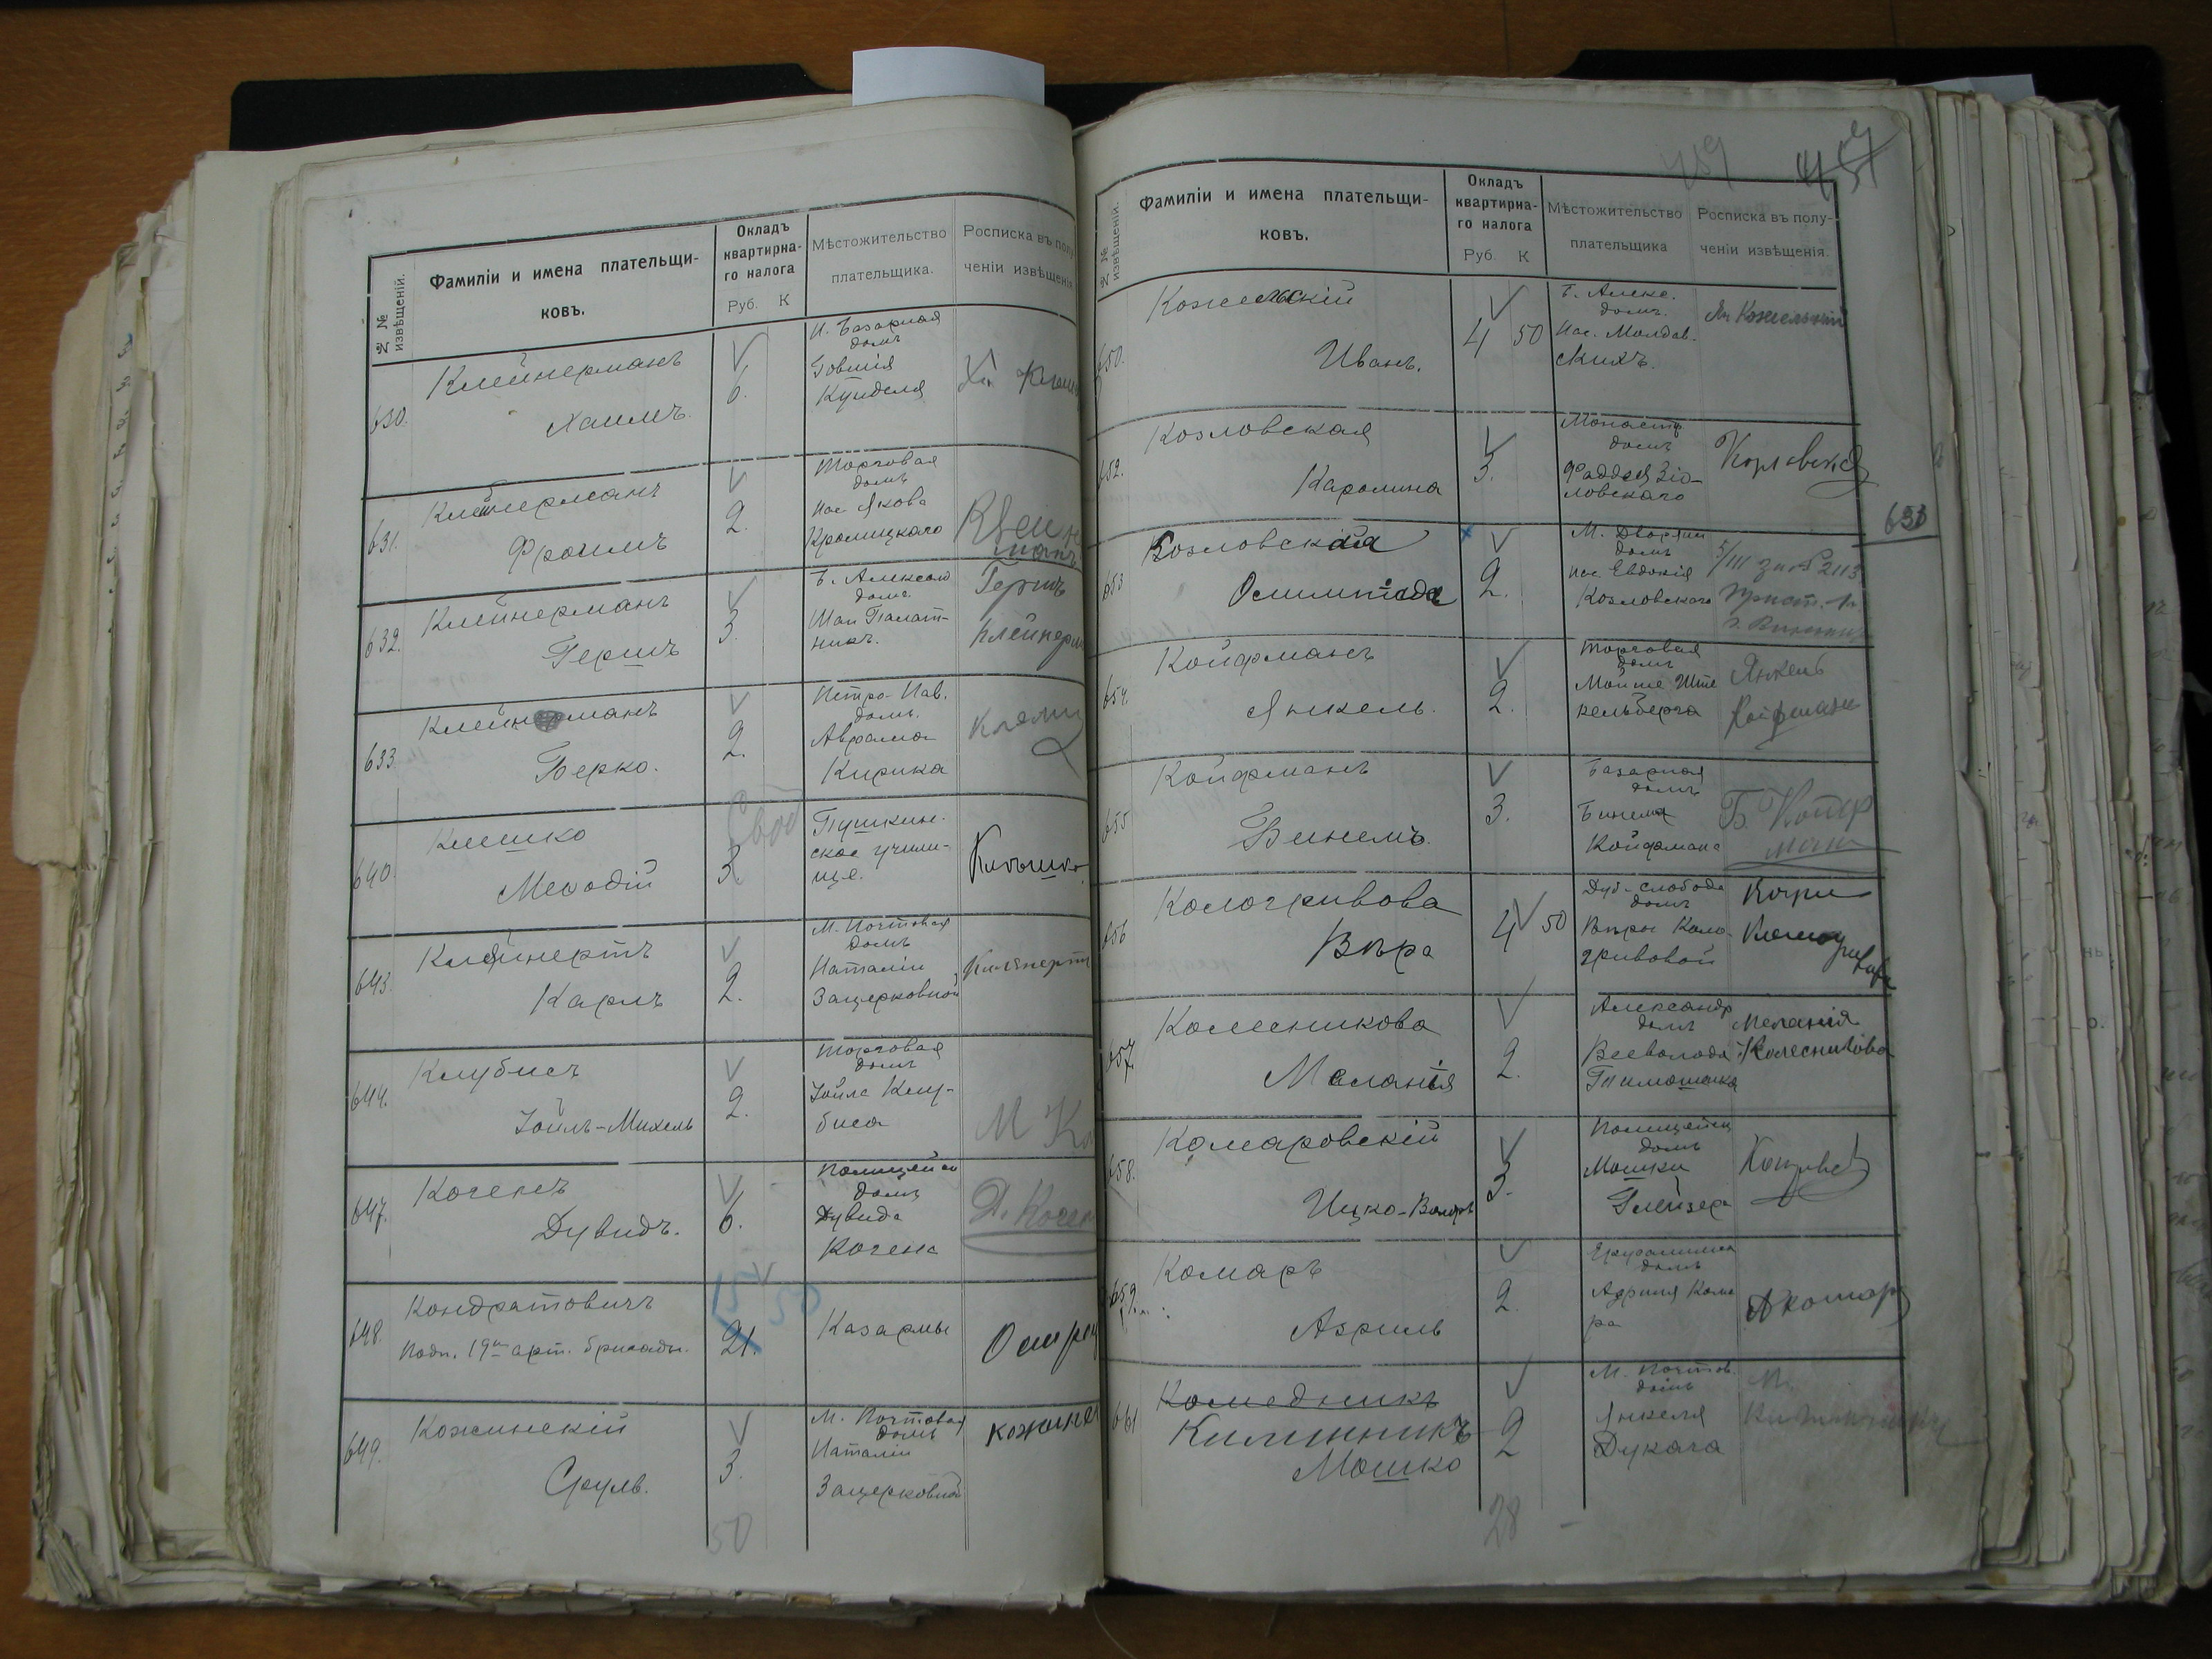 № №
извѣщеній.
Фамиліи и имена плательщи-
ковъ.
Окладъ
квартирна-
го налога
Руб. К
Мѣстожительство
плательщика.
Росписка въ полу
ченіи извѣщенія
630.
Клейнерманъ
Хаимъ.
6.
Н. Базарная
домъ
Говшія
Кунделя
631.
Клейнерманъ
Фроимъ
2.
Торговая
домъ
Нас Якова
Кромицкаго
Клейнер
манъ
632.
Клейнерманъ
Гершъ
3.
Б. Алексан
домъ
Шаи Палат-
никъ.
Гершъ
Клейнерм
633.
Клейнерманъ
Берко.
2.
Петро-Пав.
домъ.
Аврама
Кирика
640.
Клешко
Меѳодій
3
Пушкин-
ское учили-
ще.
643.
Клейнертъ
Карлъ
2.
М. Почтовая
домъ
Наталіи
Зацерковной
Клейнертъ
644.
Клубисъ
Іойлъ-Михель
2.
Торговая
домъ
Іойла Клу-
биса
М Кл
647.
Когенъ
Дувидъ.
6.
Полицейск
домъ
Дувида
Когена
Д. Коген
648.
Кондратовичъ
подп. 19й арт. бригады.
15 50
21.
Казармы
649.
Кожинскій
Сруль.
3.
М. Почтовая
домъ
Наталіи
Зацерковной
кожинс
50
459
№ №
извѣщеній.
Фамиліи и имена плательщи-
ковъ.
Окладъ
квартирна-
го налога
Руб. К
Мѣстожительство
плательщика
Росписка въ полу-
ченіи извѣщенія.
650.
Кожельскій
Иванъ.
4 50
Б. Алекс.
домъ.
Нас. Молдав-
скихъ.
Кожельскій
652.
Козловская
Каролина
3.
Монаст
домъ
Фаддея Зіо-
ловскаго
Козловская
653
Козловская
Олимпіада
2.
М. Дворян
домъ
нас. Евдокія
Козловскаго
633
654
Койфманъ
Янкель.
2.
Торговая
домъ
Мошле Ште
кельберга
Янкель
Койфманъ
655
Койфманъ
Бинемъ.
3.
Базарная
домъ
Бинема
Койфмана
Б. Койф
манъ
656
Кологривова
Вѣра
4 50
Дуб-слобода
домъ
Вѣры Коло-
гривовой
657
Колесникова
Меланія
2.
Александр
домъ
Всеволода
Тимошенка
Меланія
Колесникова
658.
Комаровскій
Ицко-Вольфъ
3.
Полицейск
домъ
Мошки
Глейзера
659.
Комаръ
Азриль
2.
Іерусалимск
домъ
Азриля Кома
ра
АКомаръ
661
Комедникъ
Килимникъ
Мошко
2
М. Почтов.
домъ
Янкеля
Дукача
28